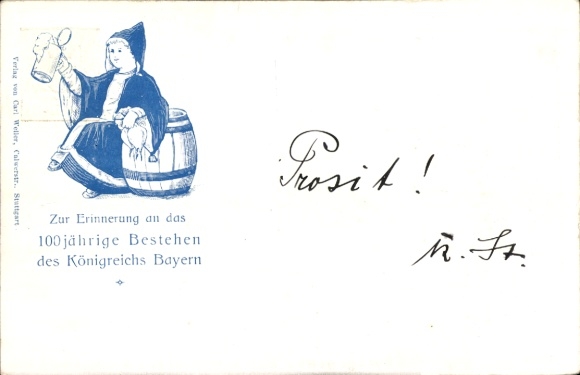 Verlag von Carl Weller, Calwerstr., Stuttgart
Zur Erinnerung an das
100jährige Bestehen
des Königreichs Bayern
Prosit!
K. St.